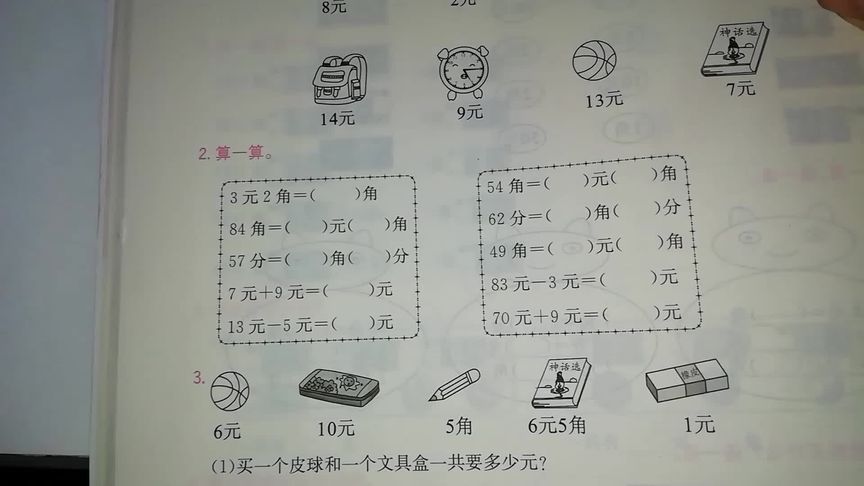 8元 2元
神话选
14元 9元 13元 7元
2. 算一算。
3元2角=( )角
84角=( )元( )角
57分=( )角( )分
7元+9元=( )元
13元-5元=( )元
54角=( )元( )角
62分=( )角( )分
49角=( )元( )角
83元-3元=( )元
70元+9元=( )元
3.
神话选 橡皮
6元 10元 5角 6元5角 1元
(1)买一个皮球和一个文具盒一共要多少元?